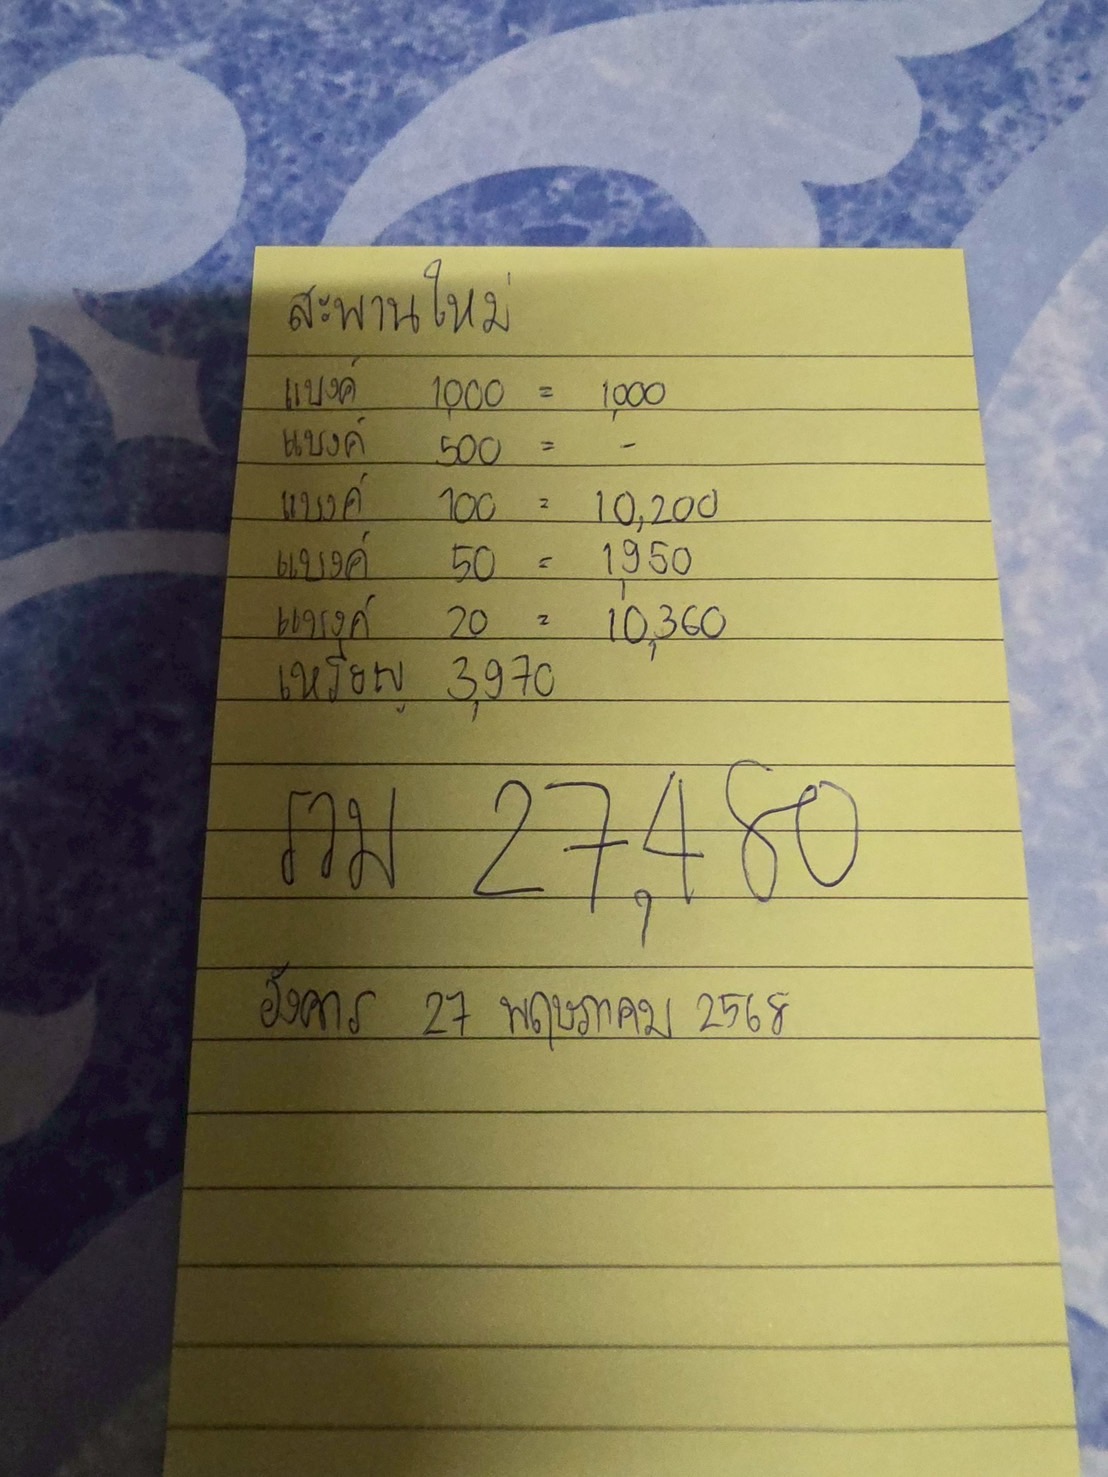 สะพานใหม่
แบงค์ 1,000 = 1,000
แบงค์ 500 = -
แบงค์ 100 = 10,200
แบงค์ 50 = 1,950
แบงค์ 20 = 10,360
เหรียญ 3,970
รวม 27,480
อังคาร 27 พฤษภาคม 2568